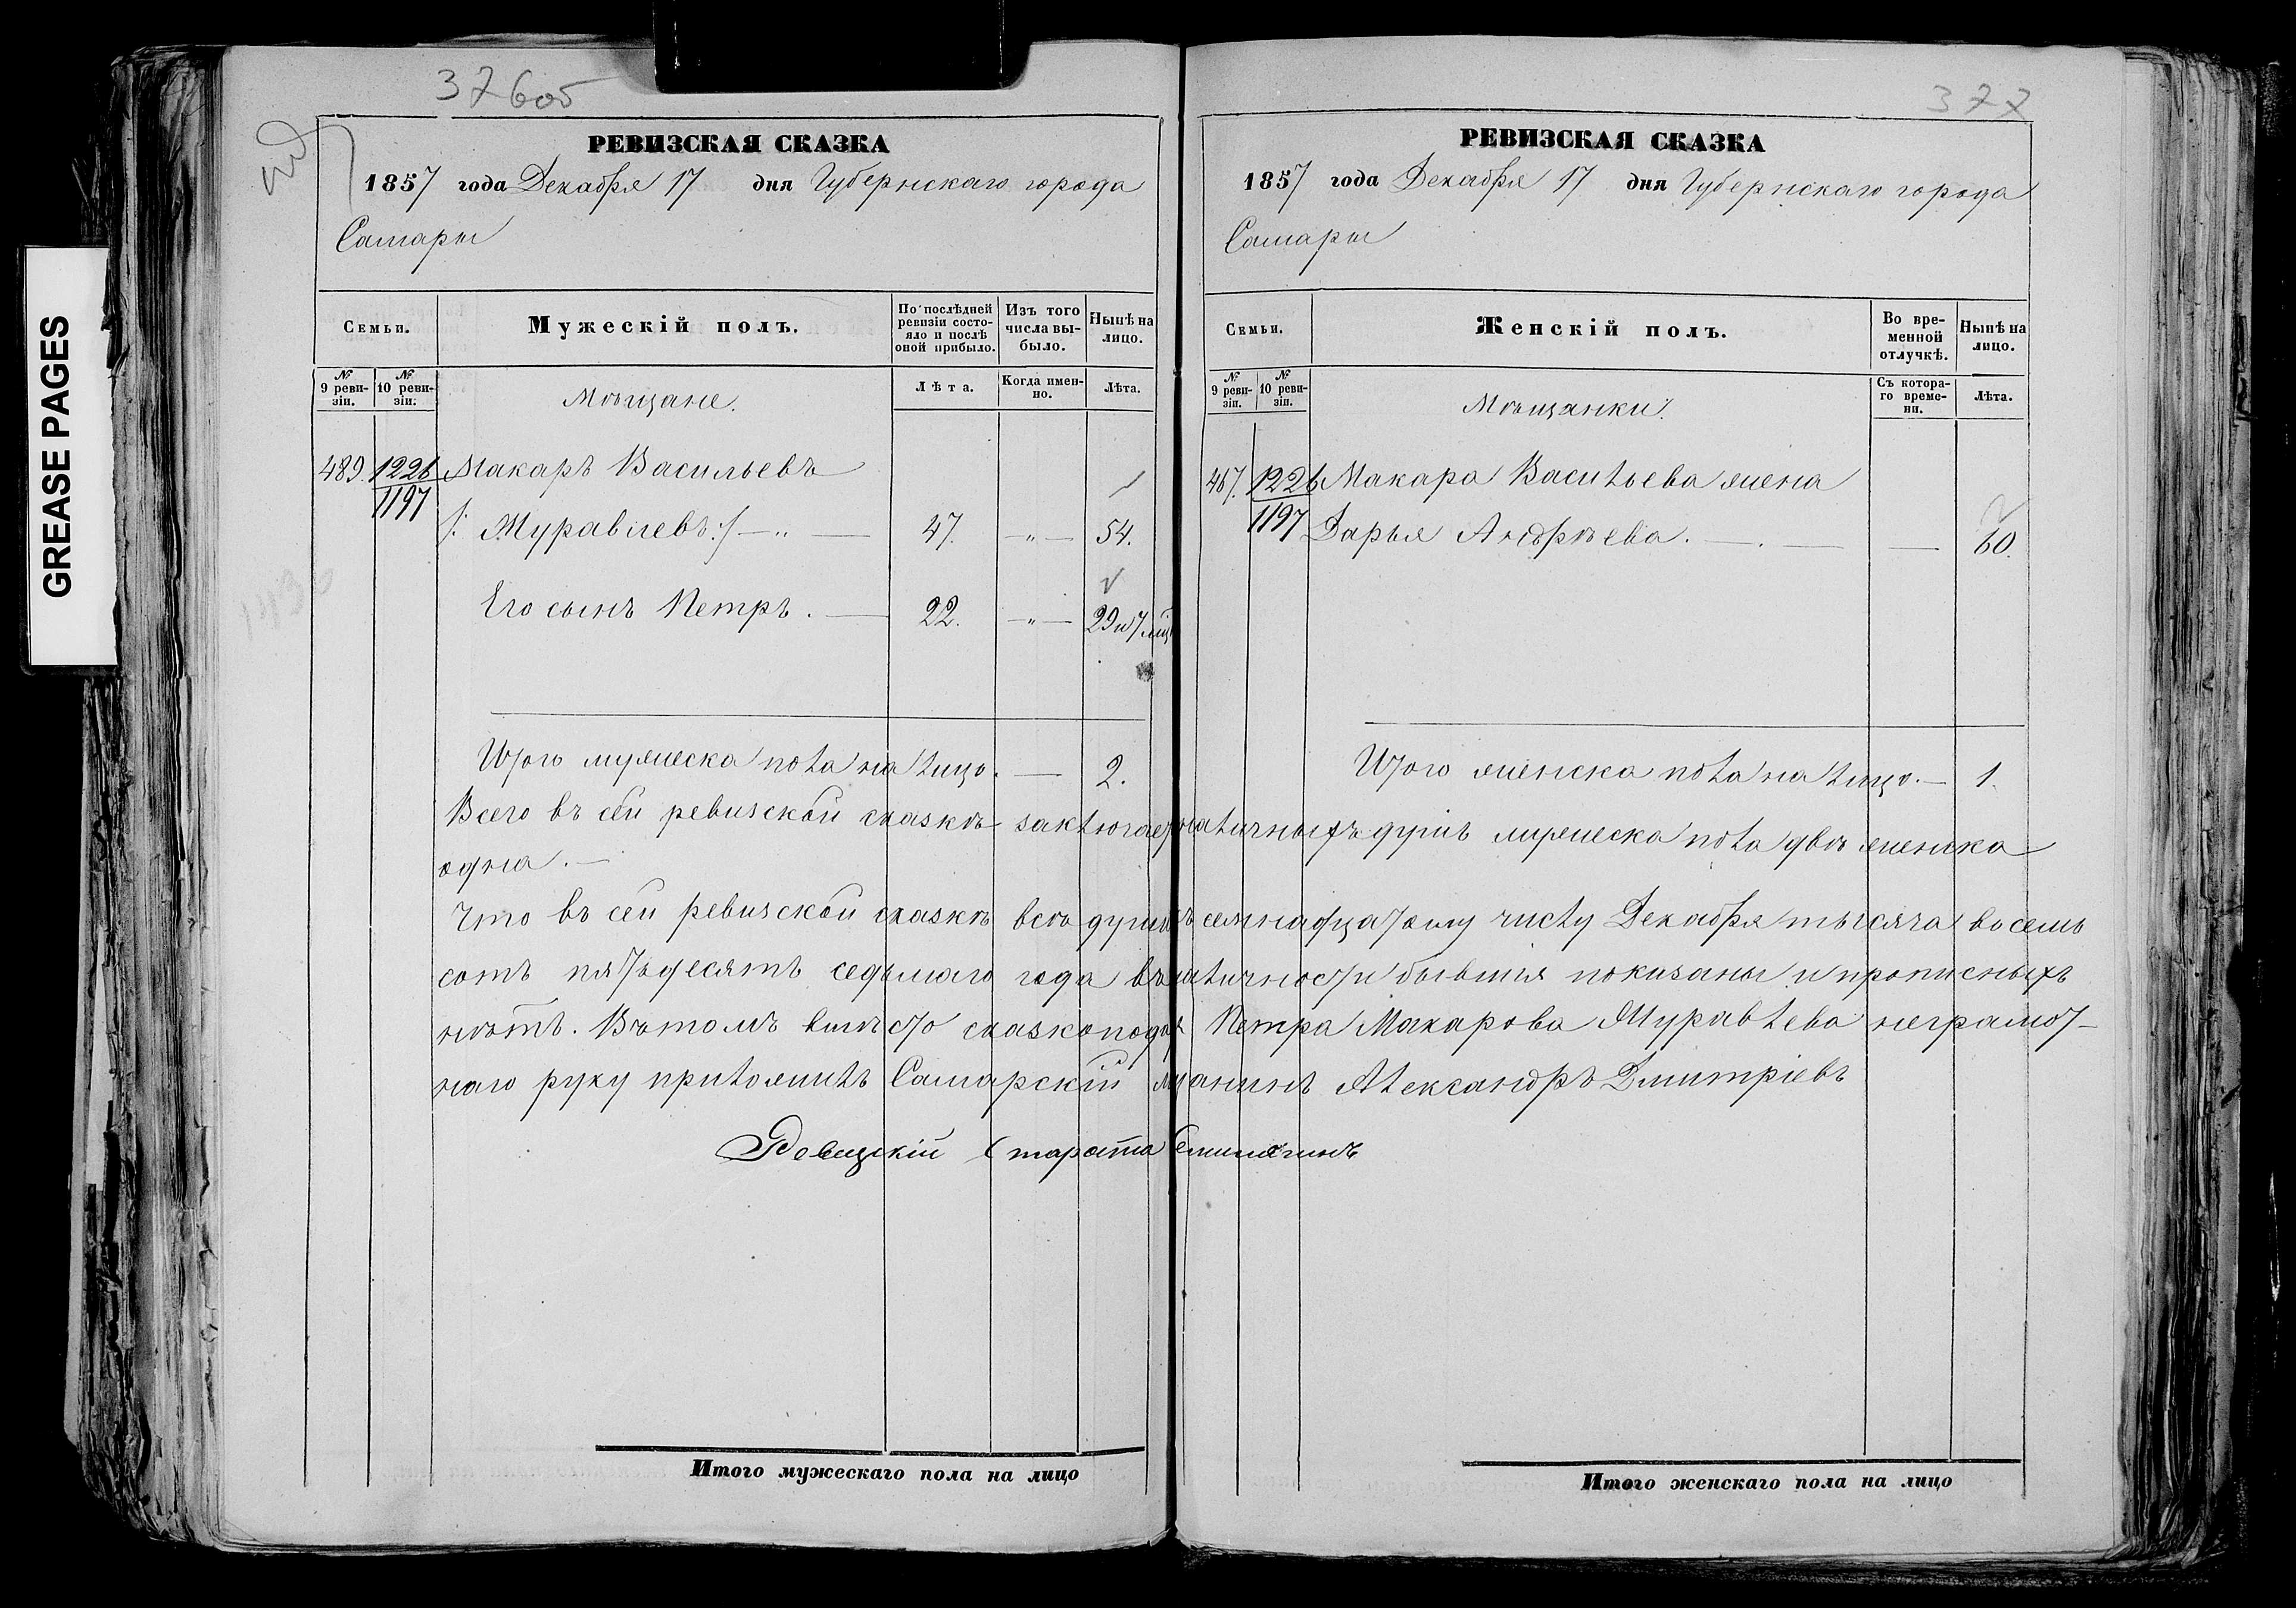 376об
РЕВИЗСКАЯ СКАЗКА
1857 года Декабря 17 дня Губернскаго города
Самары
Семьи.
Мужескій полъ.
По послѣдней ревизіи состояло и послѣ оной прибыло.
Изъ того числа выбыло.
Нынѣ на лицо.
№ 9 ревизіи.
№ 10 ревизіи.
Мѣщане.
Лѣта.
Когда именно.
Лѣта.
489. 1226 Макаръ Васильевъ
1197
/: Муравлевъ :/ — „ — 47. — „ — 54.
Его сынъ Петръ. — 22. — „ — 29 и 7 мѣц
Итого мужеска пола на лицо. — 2.
377
РЕВИЗСКАЯ СКАЗКА
1857 года Декабря 17 дня Губернскаго города
Самары
Семьи.
Женскій полъ.
Во временной отлучкѣ.
Нынѣ на лицо.
№ 9 ревизіи.
№ 10 ревизіи.
Мѣщанки.
Съ котораго времени.
Лѣта.
467. 1226 Макара Васильева жена
1197 Дарья Андрѣева. — . — — 60.
Итого женска пола на лицо. — 1.
Всего въ сей ревизской сказкѣ заключае наличныхъ душъ мужеска пола двѣ женска
одна. —
Что въ сей ревизской сказкѣ всѣ души къ семнадцатому числу Декабря тысяча восемь
сотъ пятьдесятъ седьмаго года въ наличности бывшія показаны и прописныхъ
нѣтъ. Въ томъ вмѣсто сказкопода Петра Макарова Муравлева неграмот-
наго руку приложилъ Самарскій мѣщанинъ Александръ Дмитріевъ
Итого мужескаго пола на лицо
Итого женскаго пола на лицо
GREASE PAGES